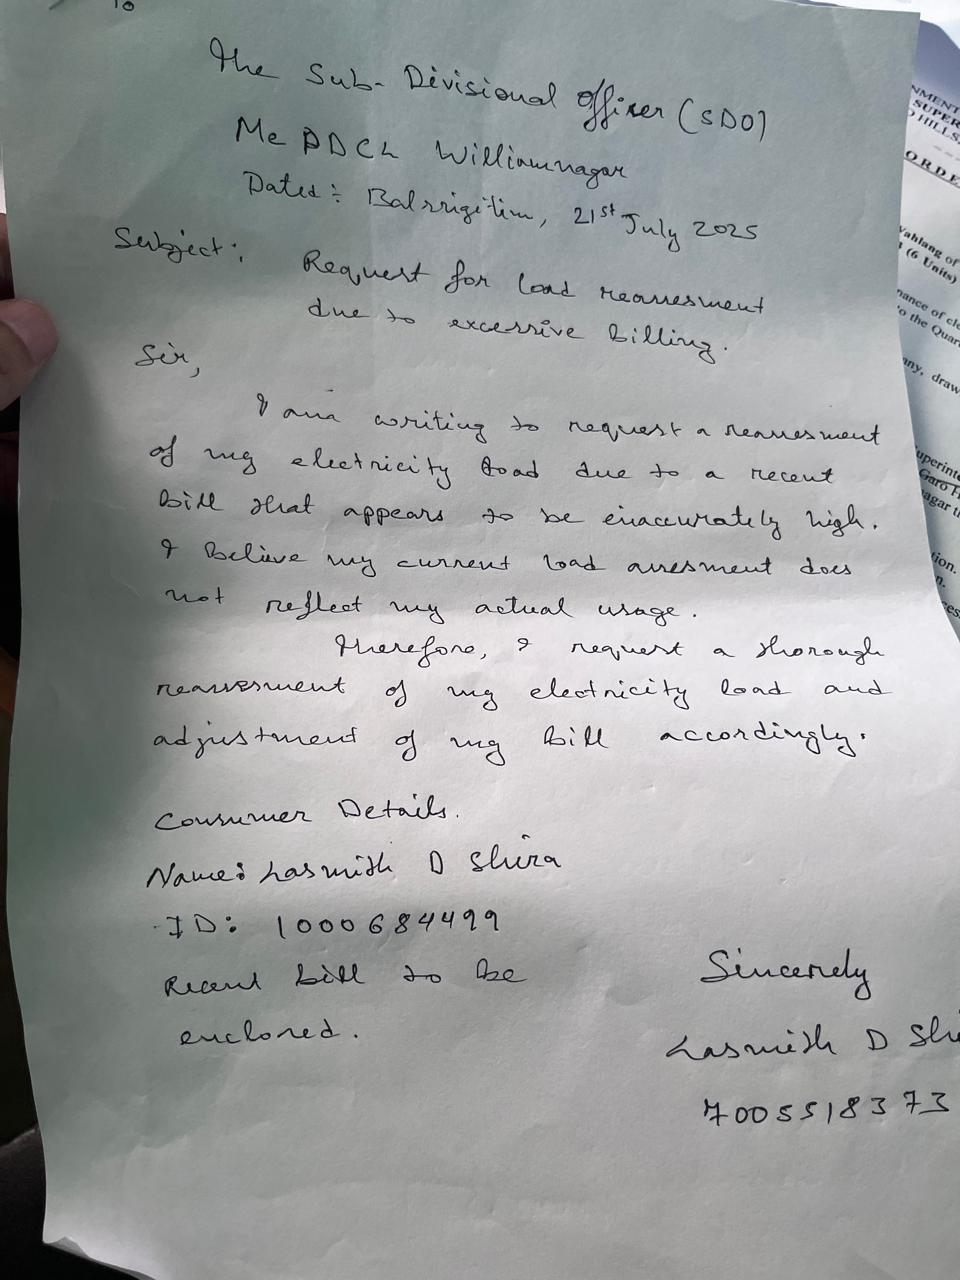 To
The Sub-Divisional Officer (SDO)
MePDCL Williamnagar
Dated: Balsrigitim, 21st July 2025
Subject: Request for load reassesment
due to excessive billing.
Sir,
I am writing to request a reassesment
of my electricity load due to a recent
bill that appears to be inaccurately high.
I believe my current load assesment does
not reflect my actual usage.
Therefore, I request a thorough
reassesment of my electricity load and
adjustment of my bill accordingly.
Consumer Details.
Name: Lasmith D Shira
ID: 1000684499
Recent bill to be
enclosed.
Sincerely
Lasmith D Shi
7005518373
NMENT
SUPER
HILLS
ORDE
Wahlang of
(6 Units)
nance of cle
to the Quar
any, draw
uperinte
Garo H
agar t
tion.
n.